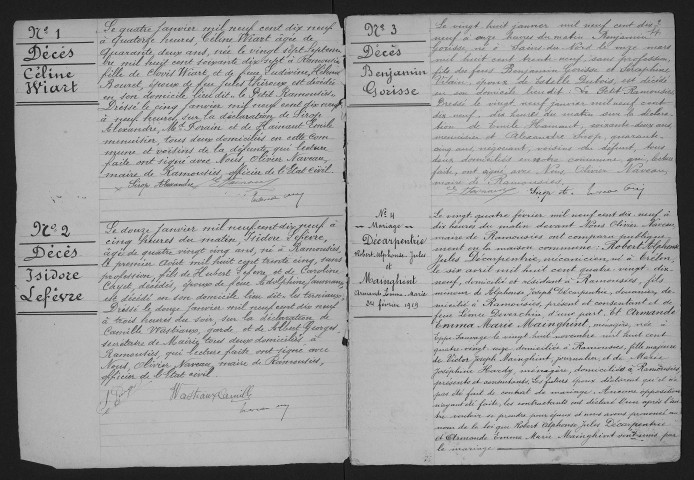 Nº 1
Décès
Céline
Wiart
Le quatre janvier mil neuf cent dix neuf
à quatorze heures, Céline Wiart âgée de
quarante deux ans, née le vingt sept septembre
mil huit cent soixante dix sept à Ramousies
fille de Clovis Wiart et de feue
épouse de feu Jules
en son domicile lieu dit le Petit Ramousies.
Dressé le cinq janvier mil neuf cent dix neuf
à neuf heures, sur la déclaration de Serge
Alexandre, Md Forain et de Hainaut Emile
menuisier, tous deux domiciliés en cette com
mune et voisins de la défunte, qui lecture
faite ont signé avec Nous, Olivier Naveau,
maire de Ramousies, officier de l'Etat civil.
Serge Alexandre
Nº 2
Décès
Isidore
Lefèvre
Le douze Janvier mil neuf cent dix neuf à
cinq heures du matin, Isidore Lefèvre,
âgé de quatre vingt cinq ans, né à Ramousies,
le premier août mil huit cent trente cinq, sans
profession, fils de Hubert Lefèvre, et de Caroline
Cayet, décédés, époux de feue Adolphine
est décédé en son domicile lieu dit
Dressé le douze Janvier mil neuf cent dix neuf
à trois heures du soir, sur la déclaration de
Camille Wastiaux, garde et de Albert Georges,
secrétaire de Mairie, tous deux domiciliés à
Ramousies, qui lecture faite ont signé avec
Nous, Olivier Naveau, maire de Ramousies,
officier de l'Etat civil.
Wastiaux Camille
Nº 3
Décès
Benjamin
Gorisse
Le vingt huit janvier mil neuf cent dix
neuf à onze heures du matin, Benjamin
Gorisse, né à Sains du Nord le onze mars
mil huit cent trente neuf, sans profession,
fils des feus Benjamin Gorisse et Séraphine
époux de Estelle est décédé
en son domicile lieu dit: Le Petit Ramousies
Dressé le vingt neuf janvier mil neuf cent
dix neuf, dix heures du matin sur la décla
ration de Emile Hainaut, soixante deux ans
menuisier et Alexandre Serge, quarante
cinq ans négociant, voisins du défunt, tous
deux domiciliés en notre commune qui, lecture
faite, ont signé avec Nous Olivier Naveau,
maire de Ramousies.
Nº 4
Mariage
Décarpentrie
Robert, Alphonse, Jules
et
Mainghint
Armande Emma Marie
24 février 1919
Le vingt quatre février, mil neuf cent dix neuf, à
dix heures du matin devant Nous Olivier Naveau,
maire de Ramousies ont comparu publique
ment en la maison commune: Robert Alphonse
Jules Décarpentrie, mécanicien, né à Trélon,
le six avril mil huit cent quatre vingt dix
neuf, domicilié, demeurant à Ramousies, fils
mineur de Alphonse Joseph Décarpentrie,
micilié à Ramousies, présent et consentant et de
feue Léonie Devorchin d'une part. Et Armande
Emma Marie Mainghint, ménagère, née à
Eppe Sauvage le vingt novembre mil huit cent
quatre vingt onze domiciliée à Ramousies, fille majeure
de Victor Joseph Mainghint, journalier, et de Marie
Joséphine Hardy, ménagère, domiciliés à Ramousies,
présents et consentants. Les futurs époux déclarent qu'il n'a
pas été fait de contrat de mariage. Aucune opposition
n'ayant été faite, les contractants ont déclaré l'un après l'au
tre vouloir se prendre pour époux et nous avons prononcé au
nom de la loi que Robert Alphonse Jules Décarpentrie
et Armande Emma Marie Mainghint sont unis par
le mariage